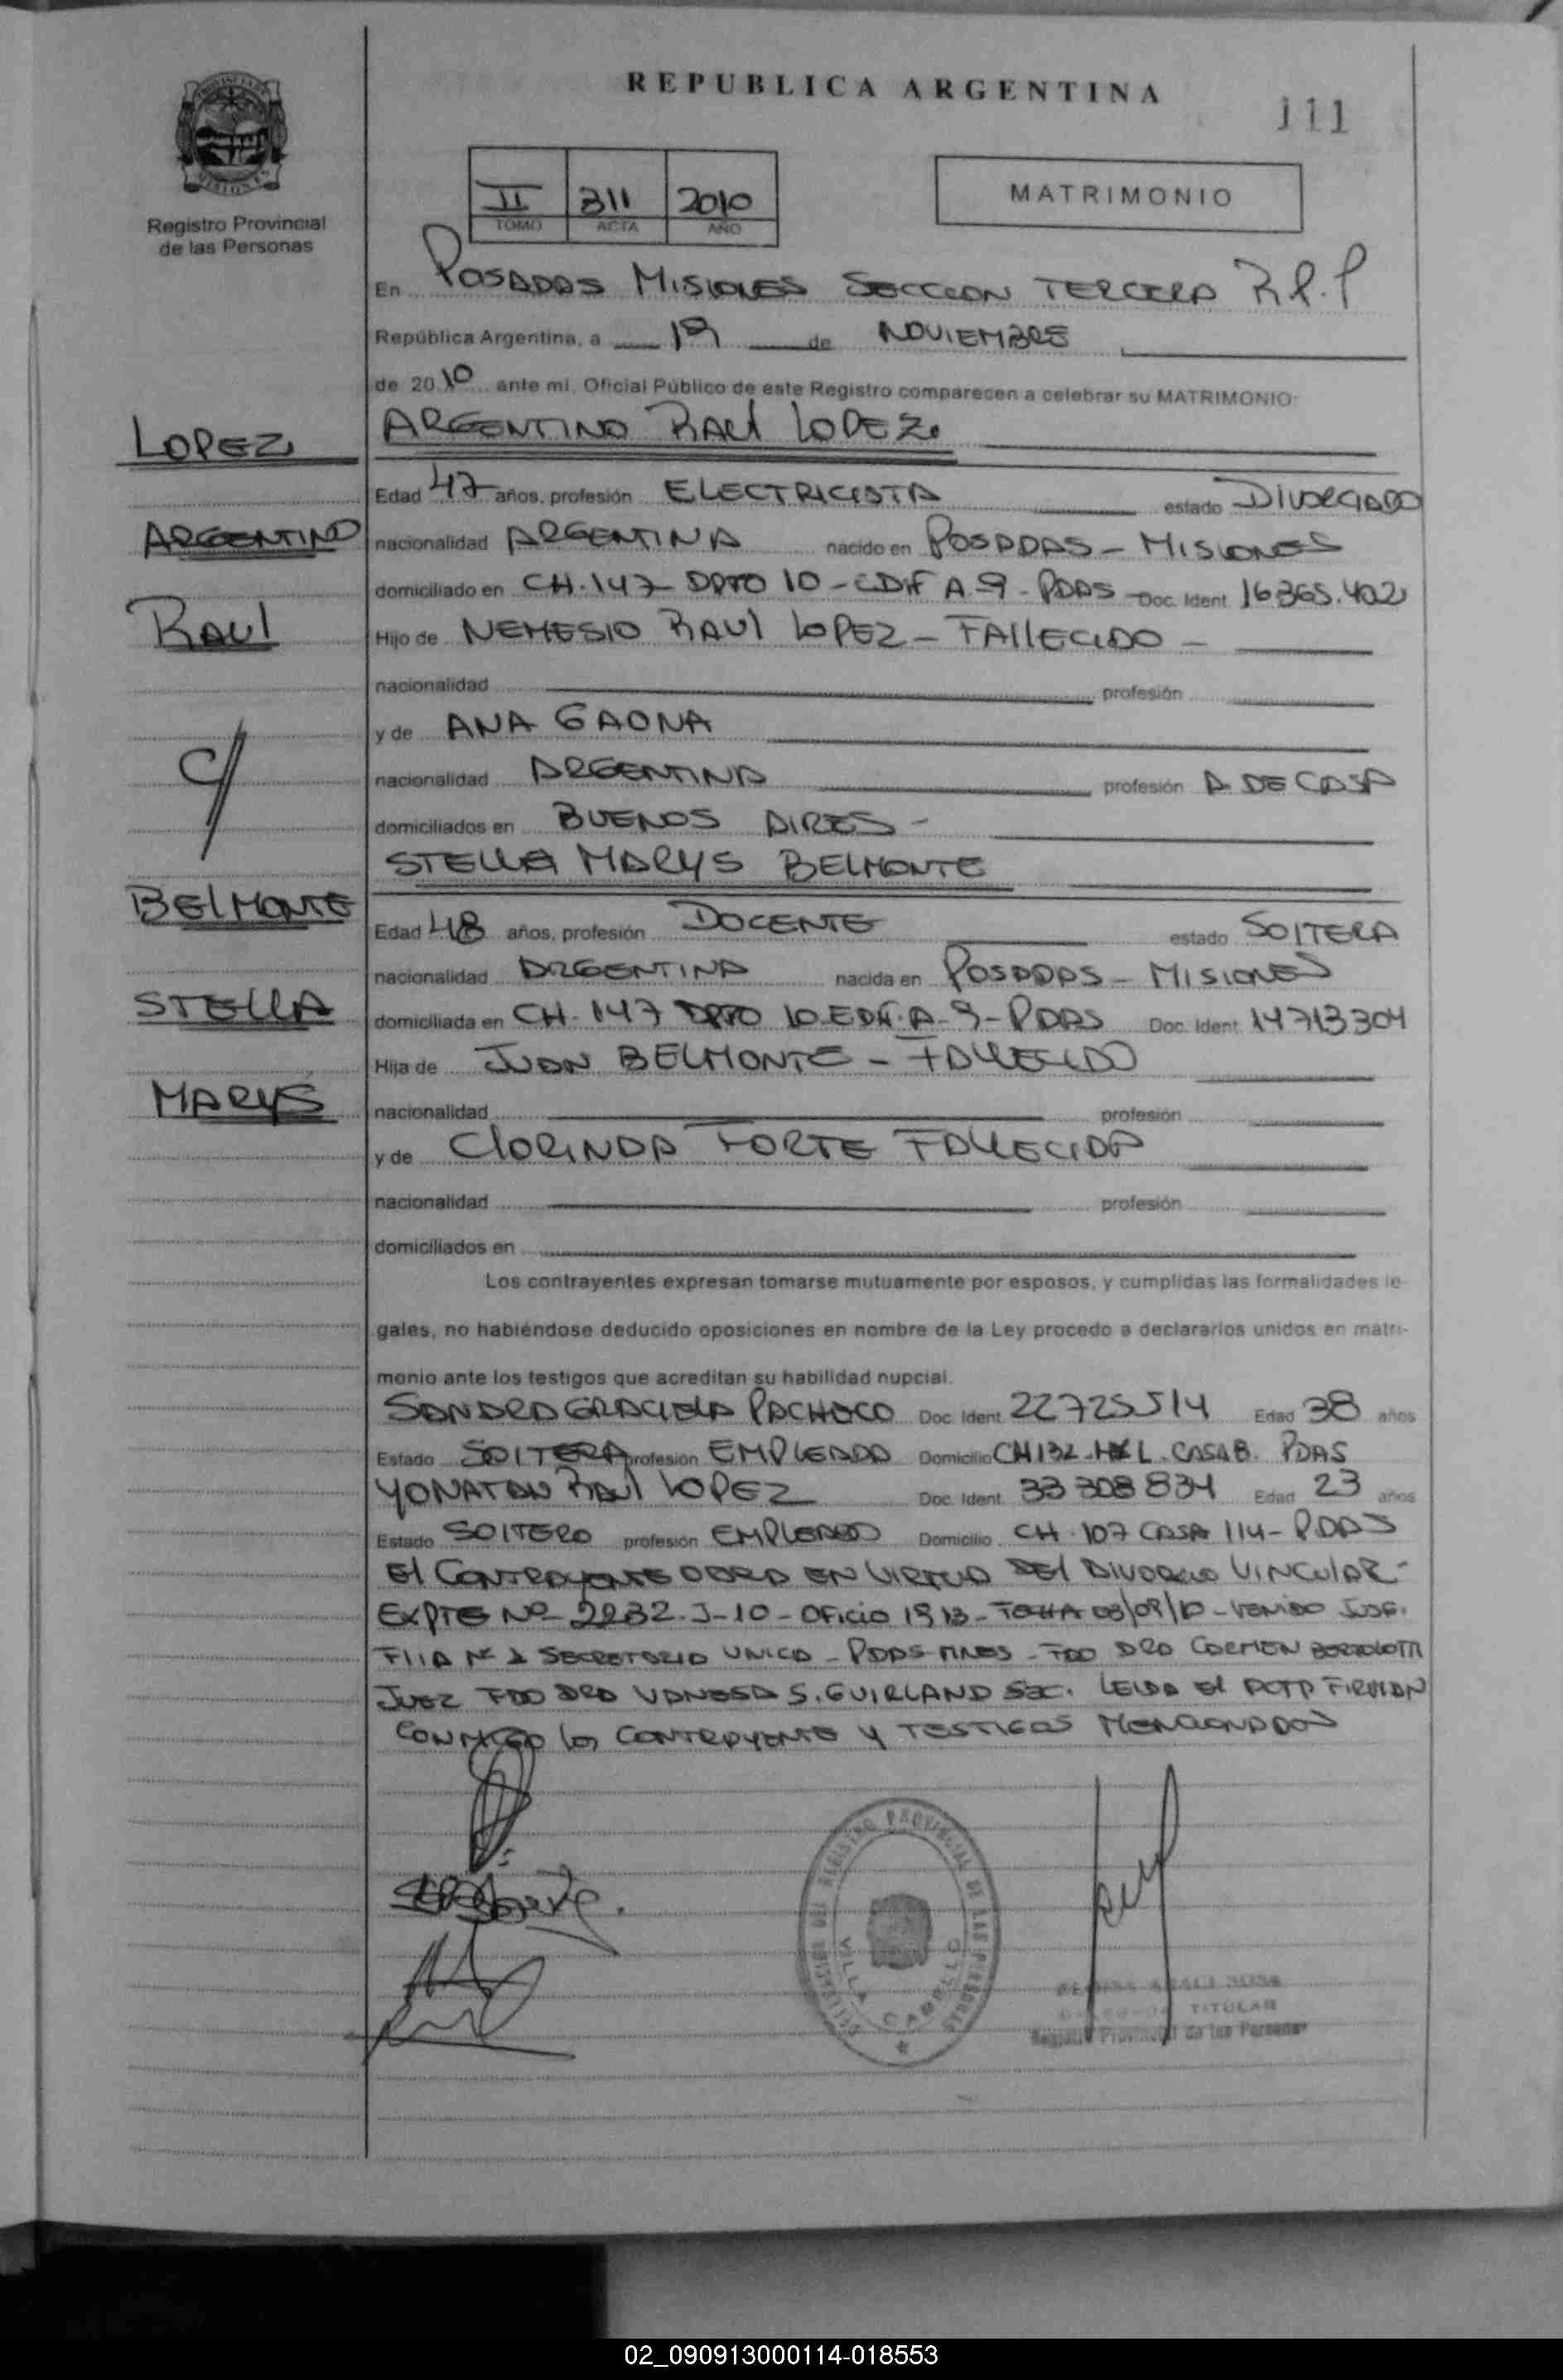 REPUBLICA ARGENTINA
111
Registro Provincial
de las Personas
II 311 2010
TOMO ACTA AÑO
MATRIMONIO
En POSADAS MISIONES SECCION TERCERA R.P.P
República Argentina, a 19 de NOVIEMBRE
de 2010 ante mí, Oficial Público de este Registro comparecen a celebrar su MATRIMONIO:
LOPEZ
ARGENTINO RAUL LOPEZ
Edad 47 años, profesión ELECTRICISTA estado DIVORCIADO
ARGENTINO
nacionalidad ARGENTINA nacido en POSADAS - MISIONES
domiciliado en CH. 147 DPTO 10 - EDIF A. 9 - PDAS Doc. Ident 16365.402
RAUL
Hijo de NEMESIO RAUL LOPEZ - FALLECIDO -
nacionalidad profesión
y de ANA GAONA
C/
nacionalidad ARGENTINA profesión A DE CASA
domiciliados en BUENOS AIRES -
STELLA MARYS BELMONTE
BELMONTE
Edad 48 años, profesión DOCENTE estado SOLTERA
nacionalidad ARGENTINA nacida en POSADAS - MISIONES
STELLA
domiciliada en CH. 147 DPTO 10 EDIF. A-9 - PDAS Doc. Ident 14713304
Hija de JUAN BELMONTE - FALLECIDO
MARYS
nacionalidad profesión
y de CLORINDA FORTE FALLECIDA
nacionalidad profesión
domiciliados en
Los contrayentes expresan tomarse mutuamente por esposos, y cumplidas las formalidades le-
gales, no habiéndose deducido oposiciones en nombre de la Ley procedo a declararlos unidos en matri-
monio ante los testigos que acreditan su habilidad nupcial.
SANDRA GRACIELA PACHECO Doc. Ident 22725514 Edad 38 años
Estado SOLTERA profesión EMPLEADA Domicilio CH 132 L. CASA 8. PDAS
YONATAN RAUL LOPEZ Doc. Ident. 33 308 834 Edad 23 años
Estado SOLTERO profesión EMPLEADO Domicilio CH. 107 CASA 114 - PDAS
El CONTRAYENTE OBRA EN VIRTUD DEL DIVORCIO VINCULAR -
EXPTE Nº 2232. J-10 - OFICIO 1913 - FECHA 03/09/10 - VENIDO JUZG.
FLIA Nº SECRETARIA UNICA - PDAS MNES - FDO DRA CARMEN BERTOLOTTI
JUEZ FDO DRA VANESA S. GUIRLAND SEC. LEIDA El ACTA FIRMAN
CONMIGO los CONTRAYENTE Y TESTIGOS MENCIONADOS
REGISTRO PROVINCIAL DE LAS PERSONAS
VILLA CABELLO
TITULAR
Registro Provincial de las Personas
02_090913000114-018553